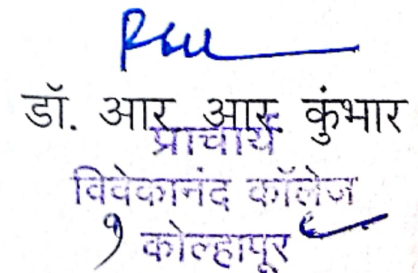 डॉ. आर आर कुंभार
प्राचार्य
विवेकानंद कॉलेज
कोल्हापूर